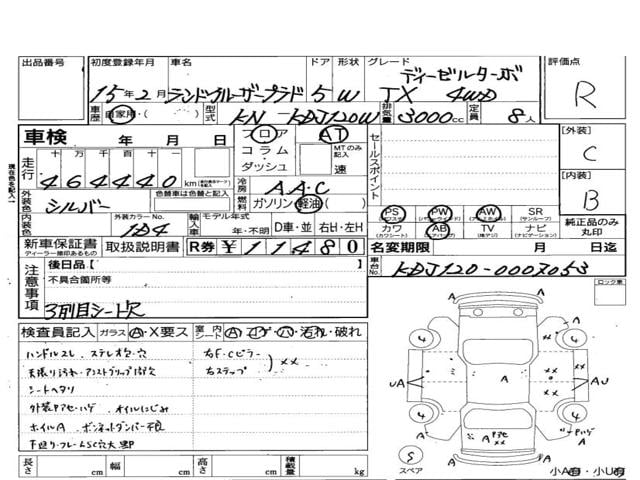 出品番号 初度登録年月 車名 ドア 形状 グレード 評価点
ディーゼルターボ
15年2月 ランドクルーザープラド 5 W TX 4WD R
車歴 自家用・( ) 型式 KN-KDJ120W 排気量 3000cc 定員 8人
車検 年 月 日 フロア AT セールスポイント [外装]
コラム・ダッシュ MTのみ記入 速 C
走行 十 万 千 百 十 一
464440 km 冷房 AAC [内装]
外装色 シルバー 色替車は色替と記入 燃料 ガソリン・軽油 B
PS PW AW SR
(サンルーフ)
内装色 外装カラーNo. 1D4 輸入車 モデル年式 年・不明 D車・並 右H・左H カワ AB TV ナビ 純正品のみ丸印
(カワシート) (エアバッグ) (ナビゲーション)
新車保証書 取扱説明書 R券 ¥11480 名変期限 月 日迄
ディーラー捺印あるもの
注意事項 後日品 [ ] 車台No. KDJ120-0007053
不具合箇所等 ロック車
3列目シート欠
検査員記入 ガラス A・X要ス 室内シート A・コゲ・穴・汚れ・破れ
ハンドルスレ ステレオ台穴 右F・Cピラー
天張り汚れ・アシストグリップ跡穴 右ステップ ××
シートヘタリ
外装PアセハゲオイルにじみホイルA ボンネットダンパー不良
下廻りフレームSC穴大
4 4
A A ××
UA A AU
4 4
A Pアセ ×× A PハゲA
S スペア
長さ cm 幅 cm 高さ cm 積載量 kg 小A有・小U有
現在色を記入